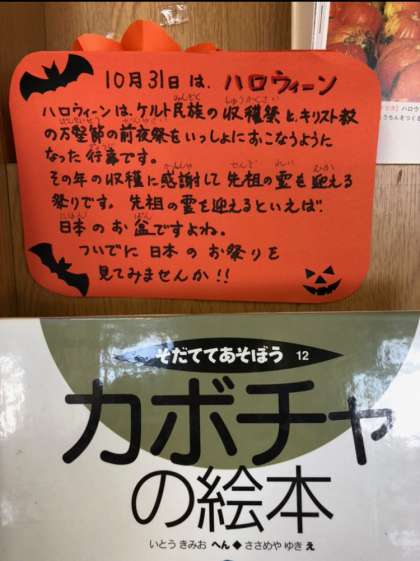 10月31日は、ハロウィーン
ハロウィーンは、ケルト民族の収穫祭と、キリスト教
の万聖節の前夜祭をいっしょにおこなうように
なった行事です。
その年の収穫に感謝して先祖の霊を迎える
祭りです。先祖の霊を迎えるといえば
日本のお盆ですよね。
ついでに日本のお祭りを
見てみませんか!!
そだててあそぼう 12
カボチャ
の絵本
いとう きみお へん◆ささめや ゆき え